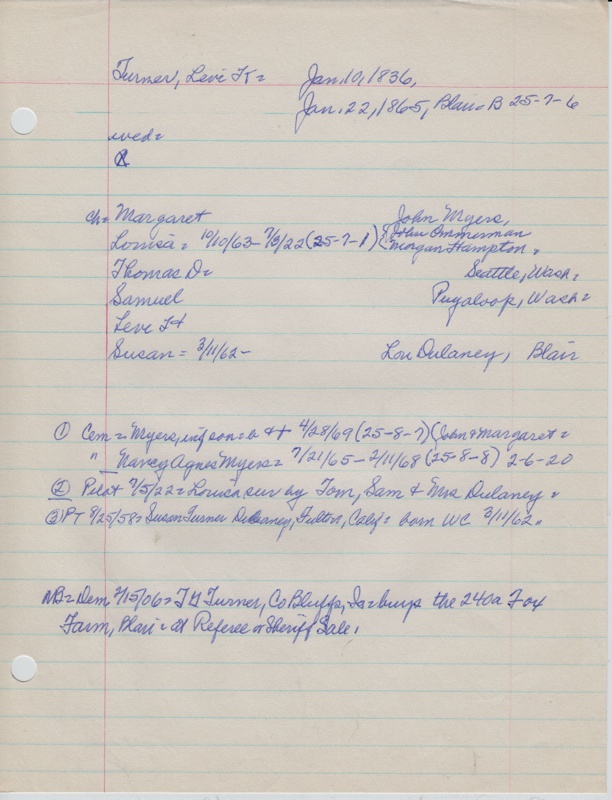 Turner, Levi K= Jan. 10, 1836,
Jan. 22, 1865, Blair= B 25-7-6
wed=
ch= Margaret John Myers,
Louisa = 10/10/63- 7/3/22 (25-7-1) { John Ammerman
Morgan Hampton =
Thomas D= Seattle, Wash=
Samuel Puyaloop, Wash=
Levi
Susan = 3/11/62- Lou Dulaney, Blair
① Cem = Myers, inf son= b & + 4/28/69 (25-8-7) (John & Margaret =
" Nancy Agnes Myers = 7/21/65 - 2/11/68 (25-8-8) 2-6-20
② Pilot 7/5/22 = Louisa sur by Tom, Sam & Mrs Dulaney =
③ PT 9/25/58= Susan Turner Dulaney, Fulton, Calif = born WC 3/11/62"
NB= Dem 2/15/06= Turner, Co Bluffs, Ia= buys the 240a Fox
Farm, Blair= at Referee or Sheriff Sale.